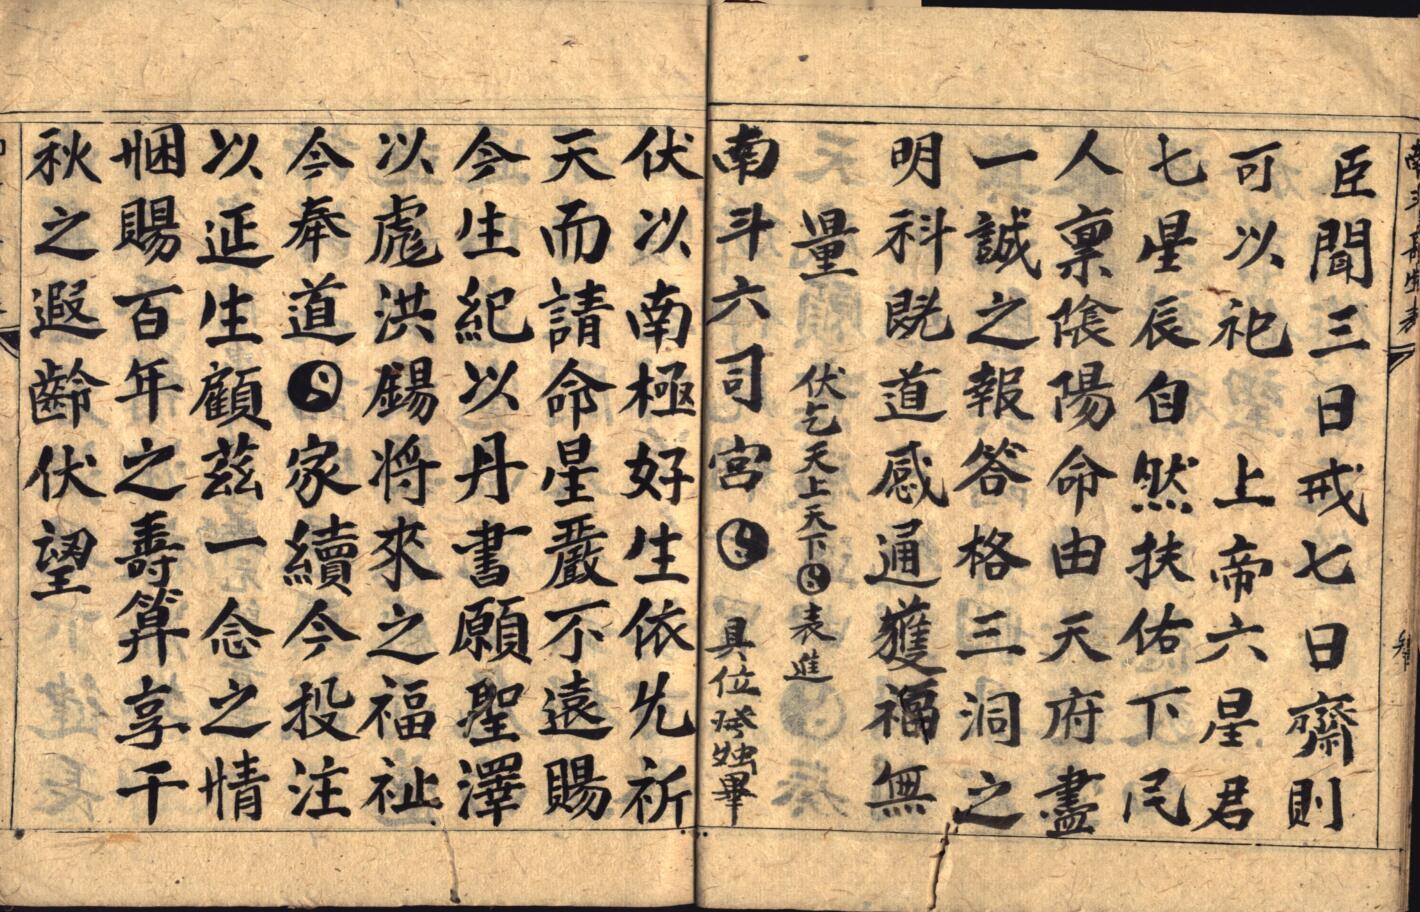 臣聞三日戒七日齋則
可以祀　上帝六星君
七星辰自然扶佑下民
人稟陰陽命由天府盡
一誠之報答格三洞之
明科既道感通獲福無
量　伏乞天上天下☯表進
南斗六司宮☯　具位　畢
伏以南極好生依先祈
天而請命星嚴不遠賜
今生紀以丹書願聖澤
以彪洪錫將來之福祉
今奉道☯家續今投注
以延生顧茲一念之情
悃賜百年之壽算享千
秋之遐齡伏望